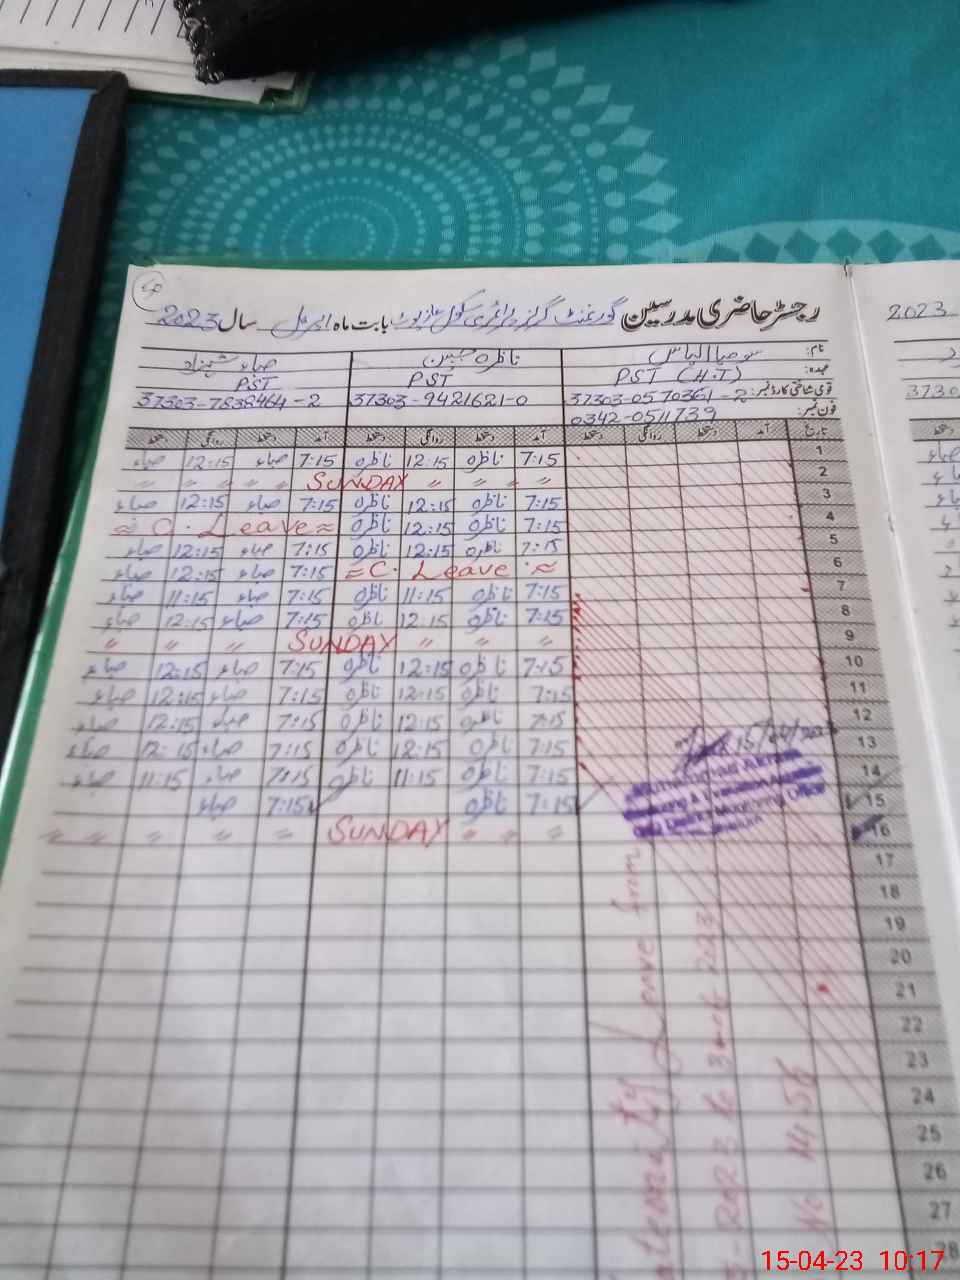 رجسٹر حاضری مدرسین گورنمنٹ گرلز پرائمری سکول بابت ماہ اپریل سال 2023
نام: صبا الیاس ناظرہ حسین صباء شہزاد
عہدہ: PST (H.T) PST PST
قومی شناختی کارڈ نمبر: 37303-0570361-2 37303-9421621-0 37303-7838464-2
فون نمبر: 0342-0511739
تاریخ آمد دستخط روانگی دستخط آمد دستخط روانگی دستخط آمد دستخط روانگی دستخط
1 7:15 ناظرہ 12:15 ناظرہ 7:15 صباء 12:15 صباء
2 " " " SUNDAY " " " "
3 7:15 ناظرہ 12:15 ناظرہ 7:15 صباء 12:15 صباء
4 7:15 ناظرہ 12:15 ناظرہ ≈ C. Leave ≈
5 7:15 ناظرہ 12:15 ناظرہ 7:15 صباء 12:15 صباء
6 ≈ C. Leave ≈ 7:15 صباء 12:15 صباء
7 7:15 ناظرہ 11:15 ناظرہ 7:15 صباء 11:15 صباء
8 7:15 ناظرہ 12:15 ناظرہ 7:15 صباء 12:15 صباء
9 " " " SUNDAY " " "
10 7:15 ناظرہ 12:15 ناظرہ 7:15 صباء 12:15 صباء
11 7:15 ناظرہ 12:15 ناظرہ 7:15 صباء 12:15 صباء
12 7:15 ناظرہ 12:15 ناظرہ 7:15 صباء 12:15 صباء
13 7:15 ناظرہ 12:15 ناظرہ 7:15 صباء 12:15 صباء
14 7:15 ناظرہ 11:15 ناظرہ 7:15 صباء 11:15 صباء
15 7:15 ناظرہ 7:15 صباء
16 " " " SUNDAY " " " "
17
18
19
20
21
22
23
24
25
26
27
28
Leave from
2023
No 1456
2023
15-04-23 10:17